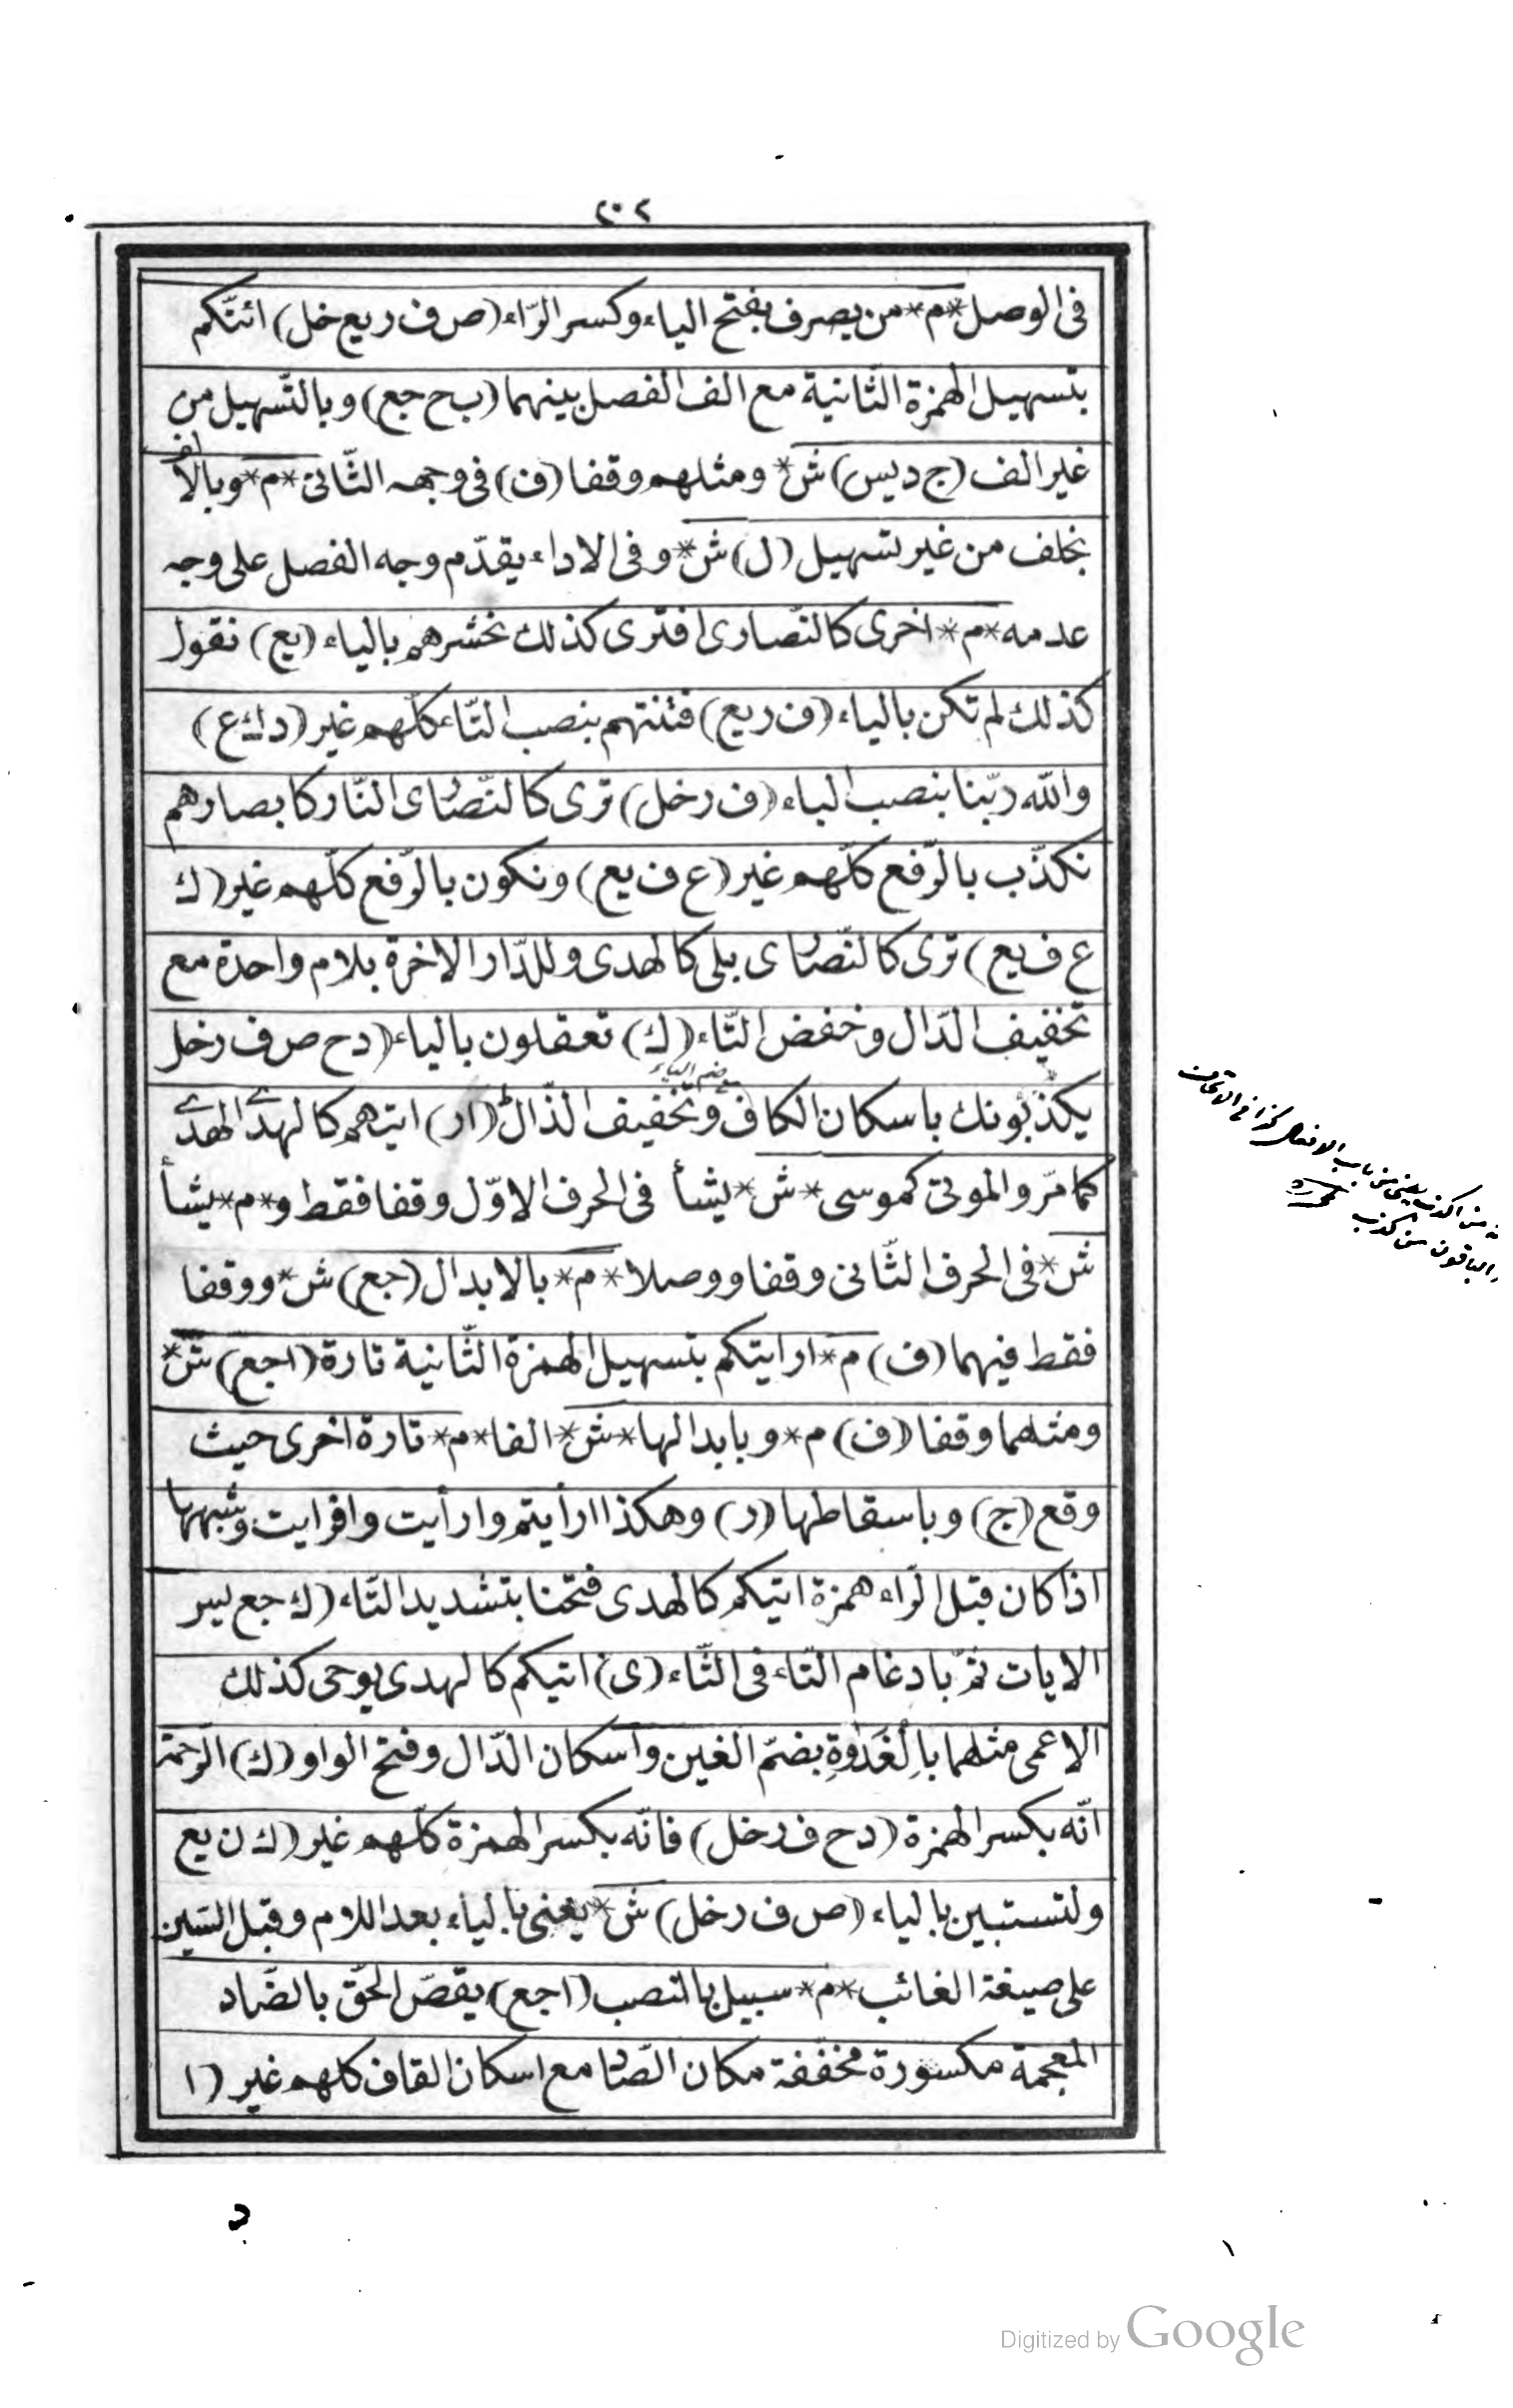 ٢٠٢
فى الوصل *م* من يصرف بفتح الياء وكسر الرّاء (ص ف ر يع خل) ائنّكم
بتسهيل الهمزة الثّانية مع الف الفصل بينهما (ب ح جع) وبالتّسهيل من
غير الف (ج د يس) ش* ومثلهم وقفا (ف) فى وجهه الثّانى *م* وبالالف
بخلف من غير تسهيل (ل) ش* وفى الاداء يقدّم وجه الفصل على وجه
عدمه *م* اخرى كالنّصارى افترى كذلك نحشرهم بالياء (يع) نقول
كذلك لم تكن بالياء (ف ر يع) فتنتهم بنصب التّاء كلّهم غير (د ك ع)
والله ربّنا بنصب الباء (ف ر خل) ترى كالنّصارى النّار كابصارهم
نكذّب بالرّفع كلّهم غير (ع ف يع) ونكون بالرّفع كلّهم غير (ك
ع ف يع) ترى كالنّصارى بلى كالهدى وللدّار الاخرة بلام واحدة مع
تخفيف الدّال وخفض التّاء (ك) تعقلون بالياء (د ح ص ف ر خل
يكذبونك باسكان الكاف وتخفيف الذّال (ا ر) اتيهم كالهدى الهدى
بضم الياء
كما مرّ والموتى كموسى *ش* يشأ فى الحرف الاوّل وقفا فقط و *م* يشأ
ش* فى الحرف الثّانى وقفا ووصلا *م* بالابدال (جع) ش* ووقفا
فقط فيهما (ف) م* ارايتكم بتسهيل الهمزة الثّانية تارة (ا جع) ش*
ومثلهما وقفا (ف) م* وبابدالها *ش* الفا *م* تارة اخرى حيث
وقع (ج) وباسقاطها (ر) وهكذا ارأيتم وارأيت وافرايت وشبهها
اذا كان قبل الرّاء همزة اتيكم كالهدى فتحنا بتشديد التّاء (ك جع يس
الايات ثمّ بادغام التّاء فى الثّاء (ى) اتيكم كالهدى يوحى كذلك
الاعمى مثلهما بِالْغُدْوَةِ بضمّ الغين واسكان الدّال وفتح الواو (ك) الرّحمة
انّه بكسر الهمزة (د ح ف ر خل) فانّه بكسر الهمزة كلّهم غير (ك ن يع
ولتستبين بالياء (ص ف ر خل) ش* يعنى بالياء بعد اللام وقبل السّين
على صيغة الغائب *م* سبيل بالنصب (ا جع) يقصّ الحقّ بالضّاد
المعجمة مكسورة مخفّفة مكان الصّاد مع اسكان القاف كلهم غير (ا
من اكذب يعنى من باب الافعال كذا فى الاتحاف
والباقون من كذب
Digitized by Google